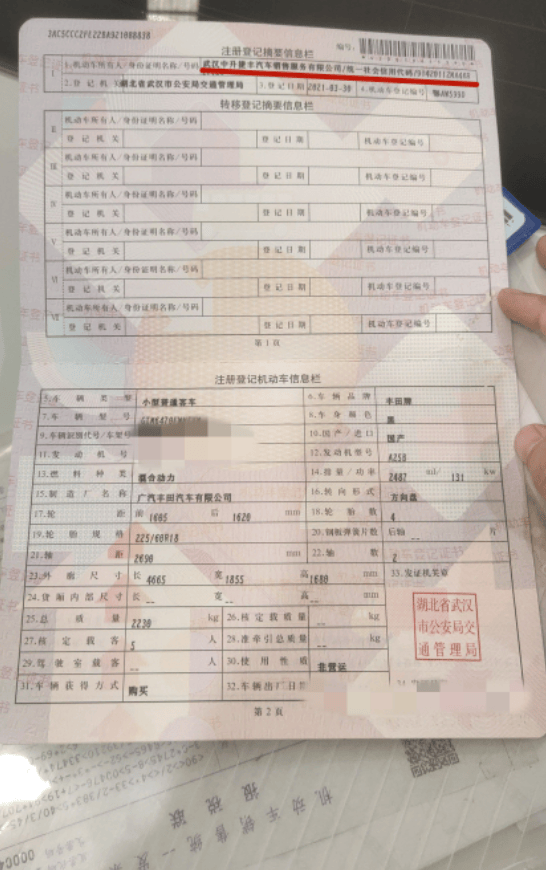 注册登记摘要信息栏
编号:
I 1.机动车所有人/身份证明名称/号码 武汉中升捷丰汽车销售服务有限公司/统一社会信用代码/
2.登记机关 湖北省武汉市公安局交通管理局 3.登记日期 2021-03-30 4.机动车登记编号
转移登记摘要信息栏
II 机动车所有人/身份证明名称/号码
登记机关 登记日期 机动车登记编号
III 机动车所有人/身份证明名称/号码
登记机关 登记日期 机动车登记编号
IV 机动车所有人/身份证明名称/号码
登记机关 登记日期 机动车登记编号
V 机动车所有人/身份证明名称/号码
登记机关 登记日期 机动车登记编号
VI 机动车所有人/身份证明名称/号码
登记机关 登记日期 机动车登记编号
VII 机动车所有人/身份证明名称/号码
登记机关 登记日期 机动车登记编号
第1页
注册登记机动车信息栏
5.车辆类型 小型普通客车 6.车辆品牌 丰田牌
7.车辆型号 8.车身颜色 黑
9.车辆识别代号/车架号 10.国产/进口 国产
11.发动机号 12.发动机型号 A25B
13.燃料种类 混合动力 14.排量/功率 2487 ml/ 131 kw
15.制造厂名称 广汽丰田汽车有限公司 16.转向形式 方向盘
17.轮距 前 1605 后 1620 mm 18.轮胎数 4
19.轮胎规格 225/60R18 20.钢板弹簧片数 后轴 -- 片
21.轴距 2690 mm 22.轴数 2
23.外廓尺寸 长 4665 宽 1855 高 1680 mm 33.发证机关章
24.货厢内部尺寸 长 -- 宽 -- 高 -- mm
25.总质量 2230 kg 26.核定载质量 -- kg
27.核定载客 5 人 28.准牵引总质量 -- kg
29.驾驶室载客 -- 人 30.使用性质 非营运
31.车辆获得方式 购买 32.车辆出厂日期
湖北省武汉
市公安局交
通管理局
第2页
机动车销售统一发票
报税联